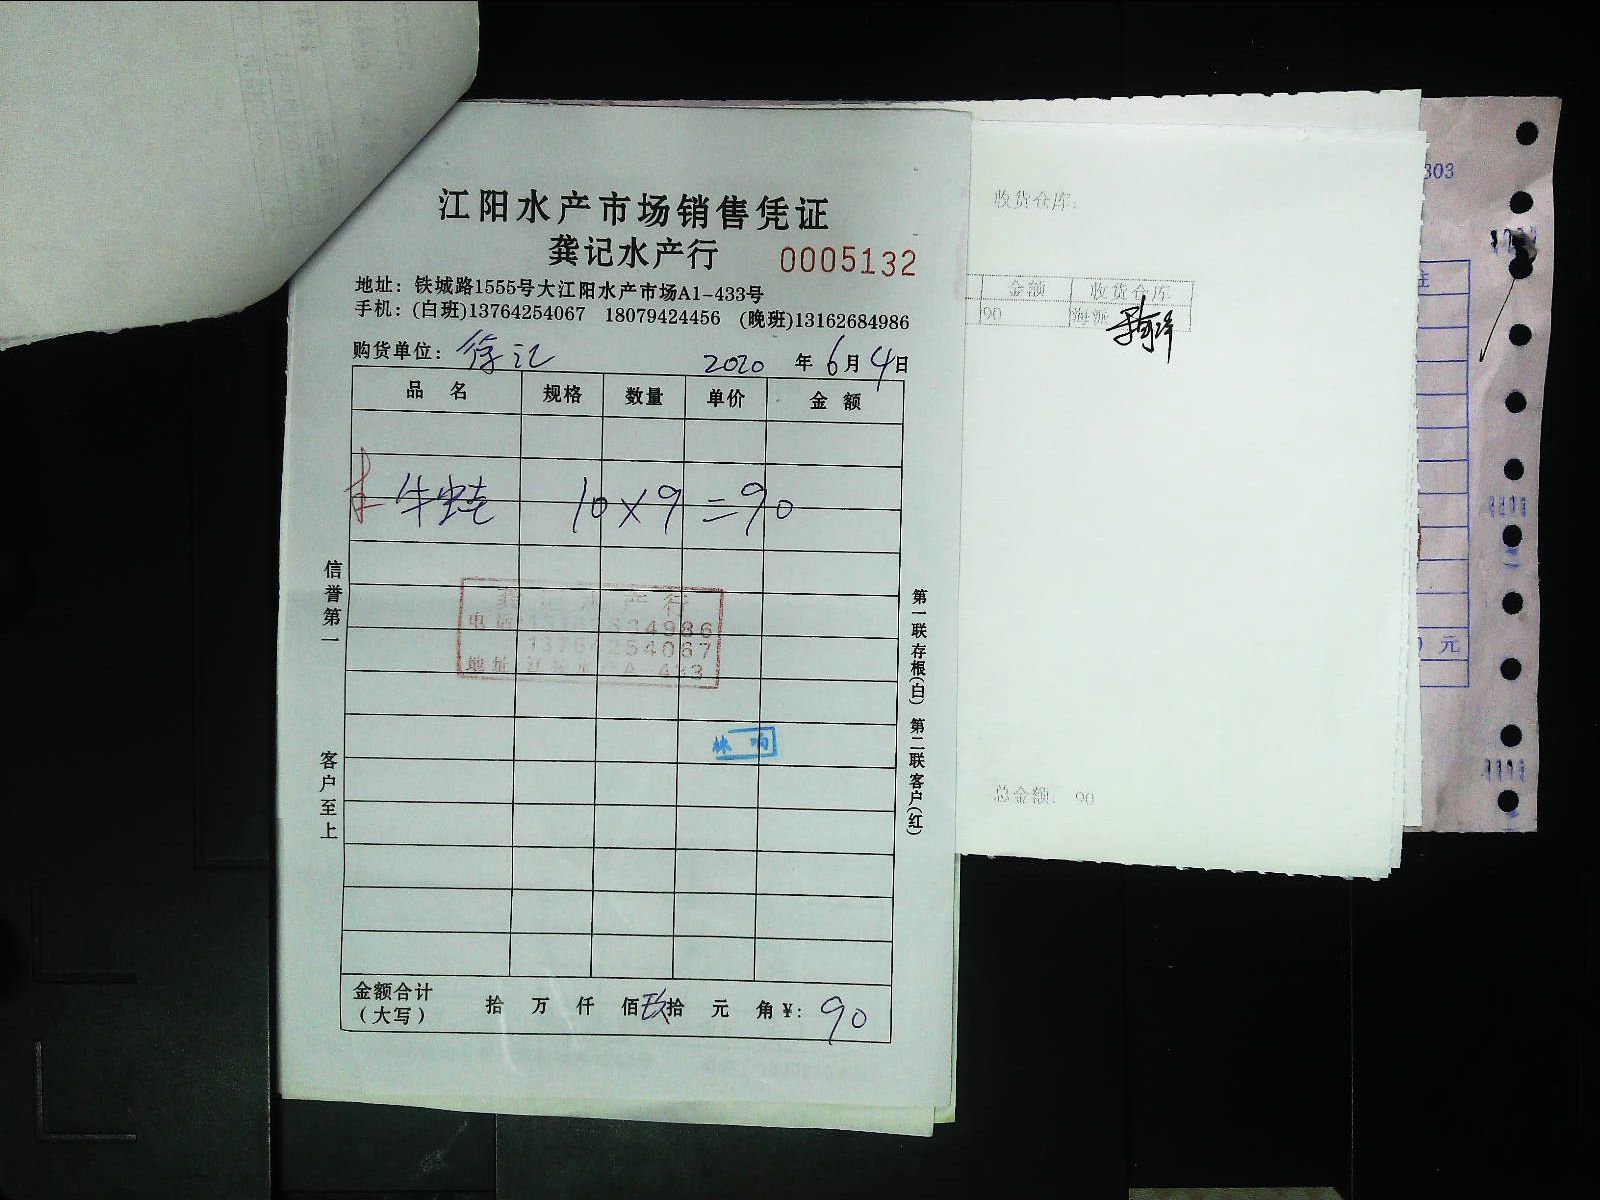 江阳水产市场销售凭证
龚记水产行 0005132
地址：铁城路1555号大江阳水产市场A1-433号
手机：(白班)13764254067 18079424456 (晚班)13162684986
购货单位：徐记 2020 年 6 月 4 日
品 名 规格 数量 单价 金 额
牛蛙 10×9=90
龚记水产行
电话 4986
13764254067
地址
林 响
金额合计
（大写） 拾 万 仟 佰 玖 拾 元 角 ¥: 90
信誉第一 客户至上
第一联存根(白) 第二联客户(红)
收货仓库:
金额 收货仓库
90
总金额: 90
303
元